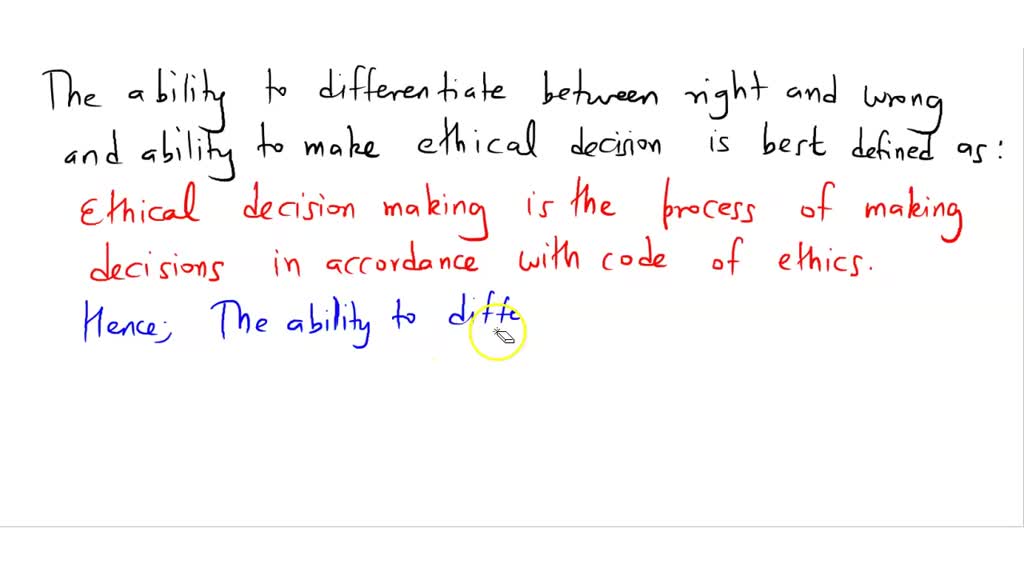 The ability to differentiate between right and wrong
and ability to make ethical decision is best defined as:
Ethical decision making is the process of making
decisions in accordance with code of ethics.
Hence; The ability to diffe